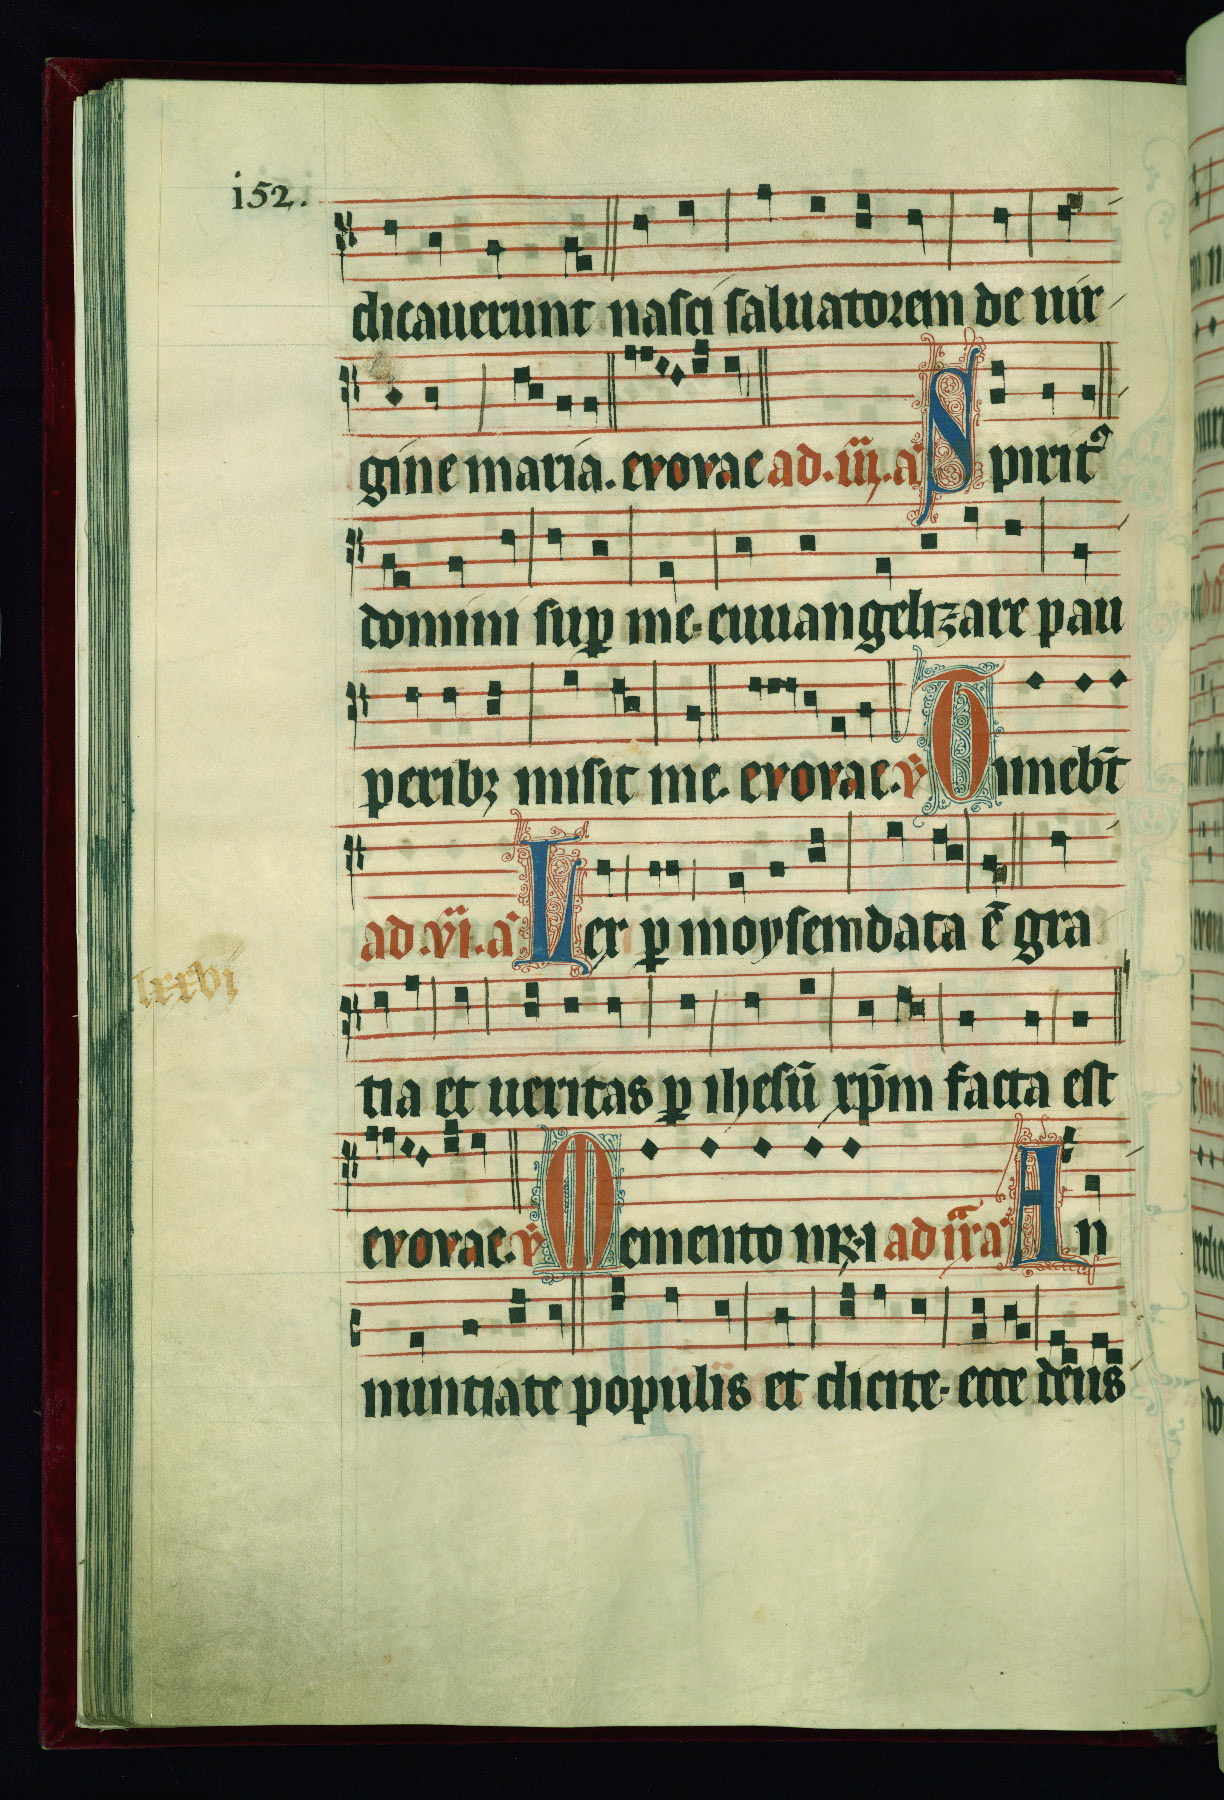 i52.
dicauerunt nasci saluatorem de uir
gine maria. evovae ad. iij. a Spirit⁹
domini sup me. euuangelizare pau
peribꝫ misit me. evovae. v̄ Timebt̄
ad. vi. a Lex p moysem data ē gra
lxxvi
tia et ueritas p ihesū xp̄m facta est
evovae. v̄ Memento nr̄i ad ix̄ a An
nuntiate populis et dicite. ecce deus